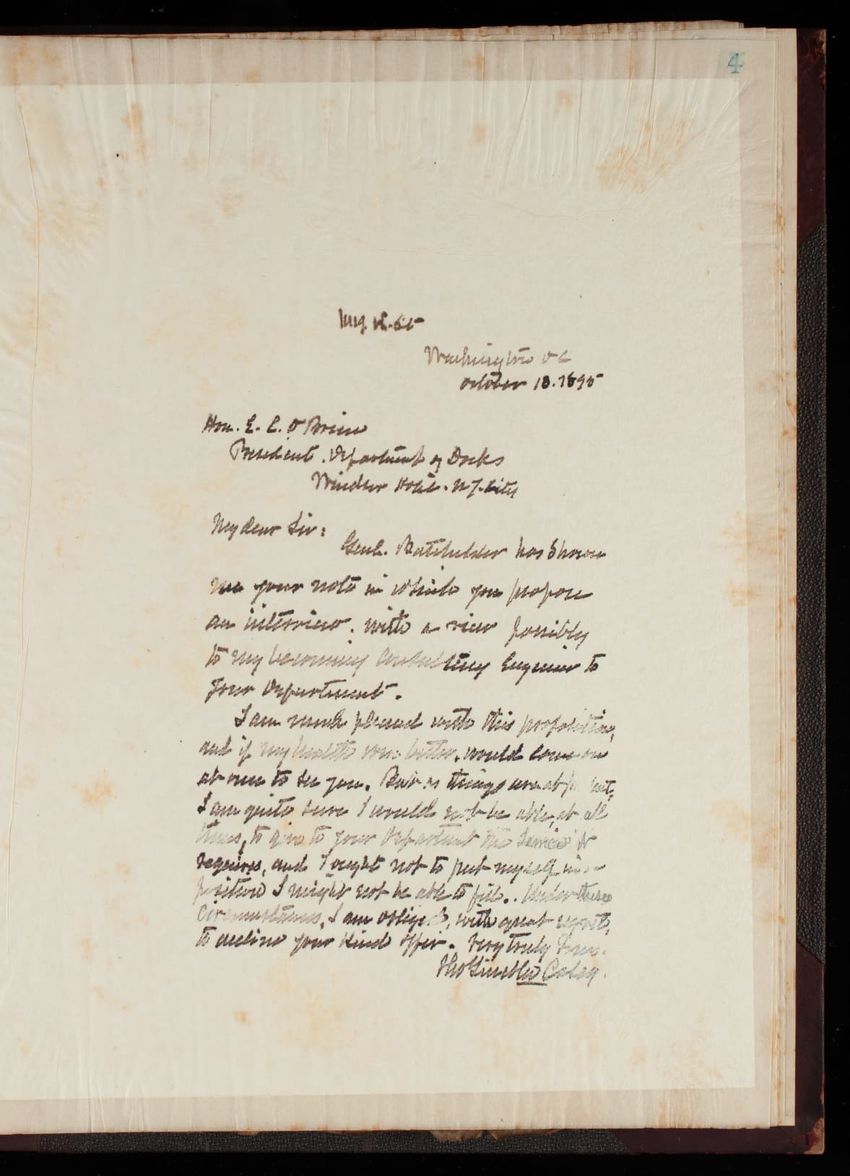 4
Washington DC
October 18. 1895
Hon. E. C. O'Brien
President. Department of Docks
Windsor Hotel. N.Y. City
My dear Sir:
Genl. Batchelder has shown
me your note in which you propose
an interview. with a view possibly
to my becoming Consulting Engineer to
your Department.
I am much pleased with this proposition,
and if my health were better, would come on
at once to see you. But as things are at
I am quite sure I would not be able, at all
times, to give to your Department the service it
requires, and I ought not to put myself in a
position I might not be able to fill. Under these
Circumstances, I am obliged, with great regret,
to decline your kind offer. Very truly Yours.
Thos Lincoln Casey.